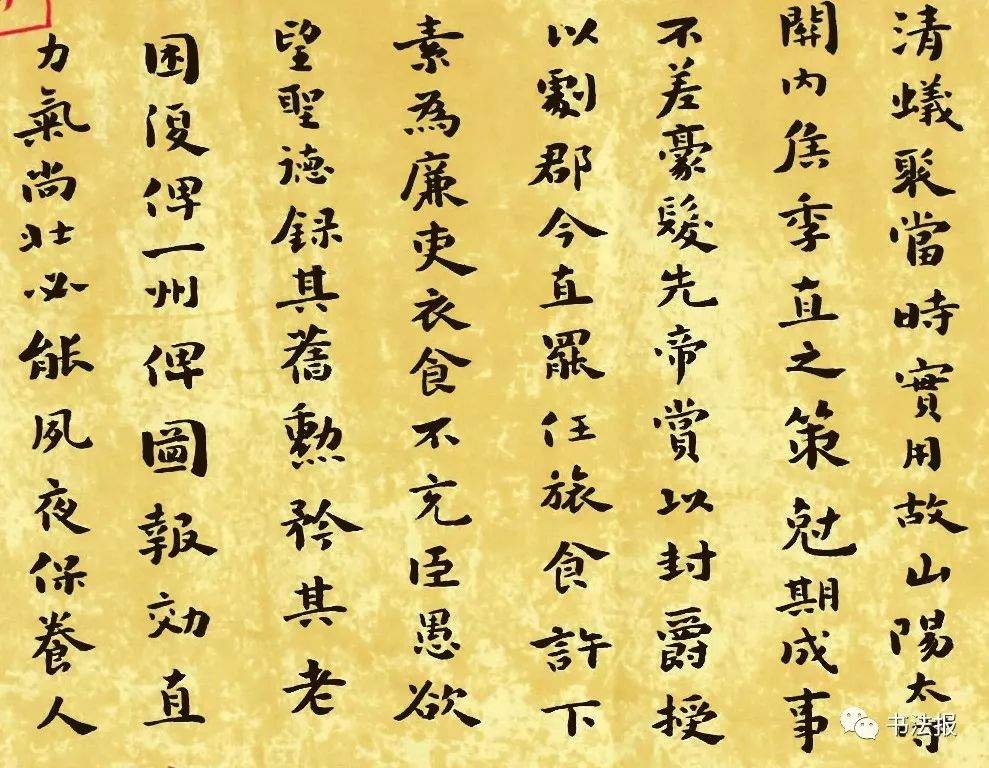 清蟻聚當時實用故山陽太守
關內侯季直之策尅期成事
不差豪髮先帝賞以封爵授
以劇郡今直罷任旅食許下
素為廉吏衣食不充臣愚欲
望聖德録其舊勲矜其老
困復俾一州俾圖報効直
力氣尚壯必能夙夜保養人
书法报